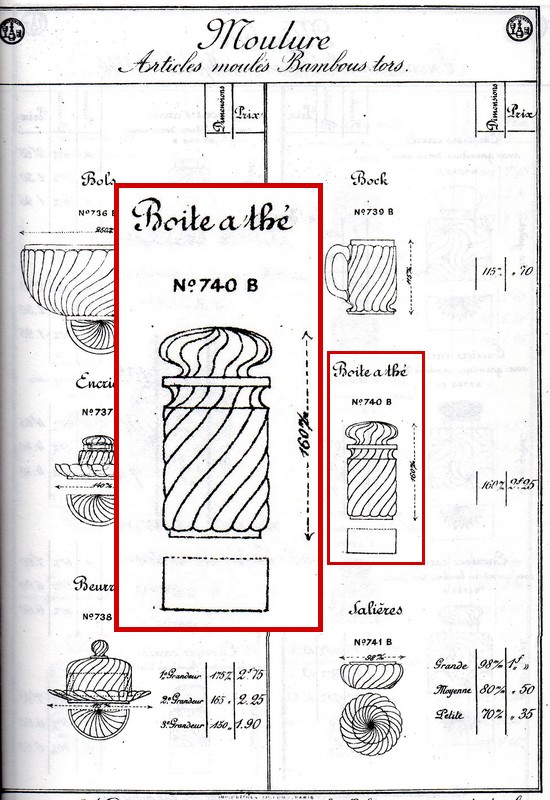 Moulure
Articles moulés Bambous tors.
Dimensions
Prix
Dimensions
Prix
Bols
Nº 736 B
Bock
Nº 739 B
115%
" 70
Boite a thé
Nº 740 B
160%
Boite a thé
Nº 740 B
160%
160% 2f.25
Nº 737
140%
Nº 738
1e Grandeur 175% 2f.75
2e Grandeur 165 " 2.25
3e Grandeur 150 " 1.90
Salières
Nº 741 B
98%
Grande 98% 1f "
Moyenne 80% " 50
Petite 70% " 35